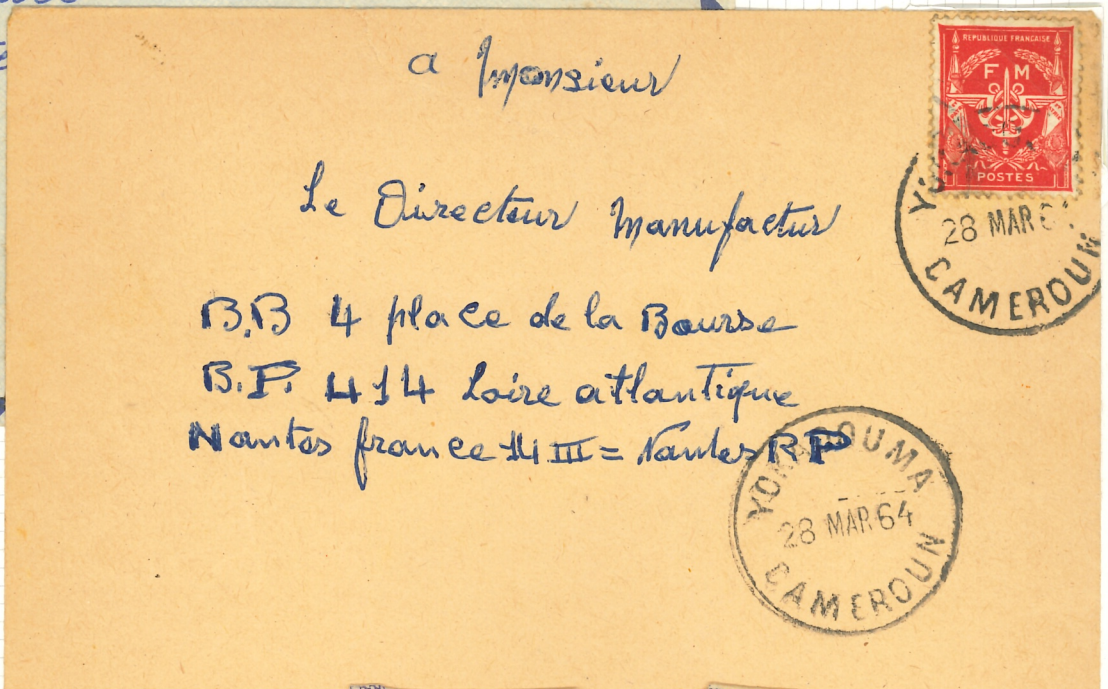 a Monsieur
Le Directeur Manufactur
B.B 4 place de la Bourse
B.P. 414 Loire atlantique
Nantes france 44 III = Nantes RP
REPUBLIQUE FRANÇAISE
F M
POSTES
28 MAR 6
CAMEROUN
YOKADOUMA
28 MAR 64
CAMEROUN